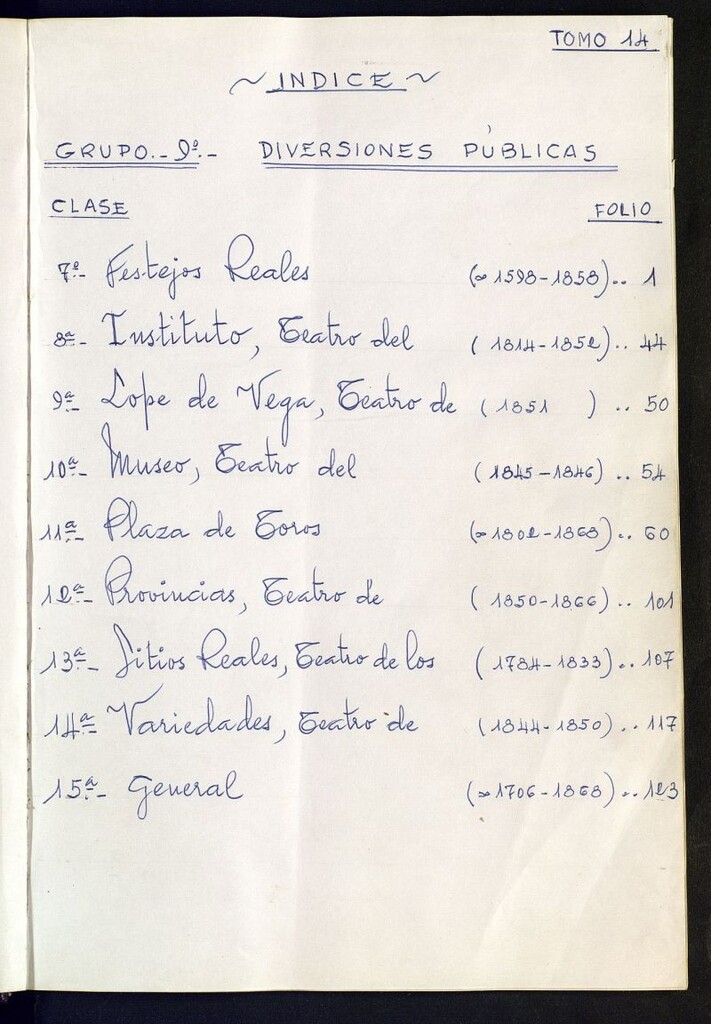 TOMO 14
~ INDICE ~
GRUPO.- 9º.- DIVERSIONES PÚBLICAS
CLASE FOLIO
7ª.- Festejos Reales (∞ 1598-1858).. 1
8ª- Instituto, Teatro del (1814-1852).. 44
9ª- Lope de Vega, Teatro de (1851 ) .. 50
10ª- Museo, Teatro del (1845-1846) .. 54
11ª- Plaza de Toros (∞ 1802-1868).. 60
12ª- Provincias, Teatro de (1850-1866) .. 101
13ª- Sitios Reales, Teatro de los (1784-1833) .. 107
14ª- Variedades, Teatro de (1844-1850) .. 117
15ª- General (∞ 1706-1868) .. 123